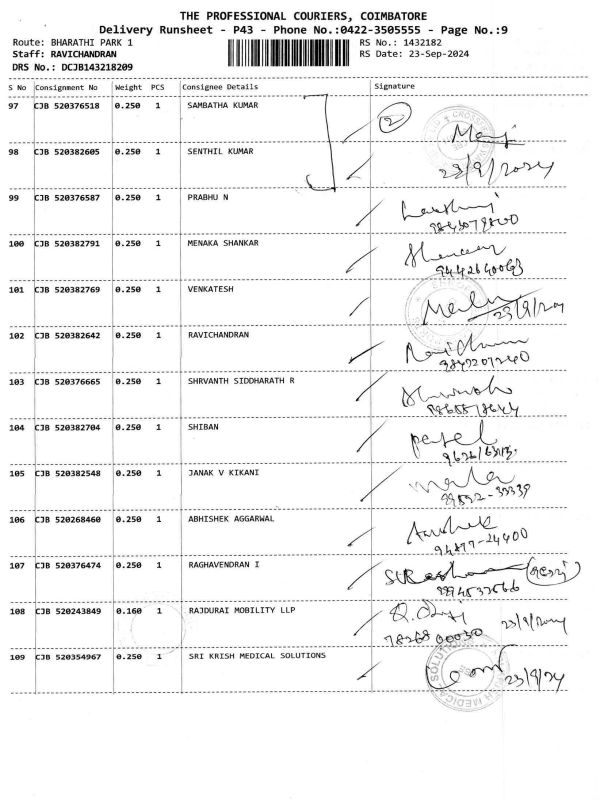 THE PROFESSIONAL COURIERS, COIMBATORE
Delivery Runsheet - P43 - Phone No.:0422-3505555 - Page No.:9
Route: BHARATHI PARK 1 RS No.: 1432182
Staff: RAVICHANDRAN RS Date: 23-Sep-2024
DRS No.: DCJB143218209
S No Consignment No Weight PCS Consignee Details Signature
97 CJB 520376518 0.250 1 SAMBATHA KUMAR 2
98 CJB 520382605 0.250 1 SENTHIL KUMAR 23/9/2024
99 CJB 520376587 0.250 1 PRABHU N
100 CJB 520382791 0.250 1 MENAKA SHANKAR
9442640063
101 CJB 520382769 0.250 1 VENKATESH
102 CJB 520382642 0.250 1 RAVICHANDRAN
9843207240
103 CJB 520376665 0.250 1 SHRVANTH SIDDHARATH R
104 CJB 520382704 0.250 1 SHIBAN
105 CJB 520382548 0.250 1 JANAK V KIKANI
106 CJB 520268460 0.250 1 ABHISHEK AGGARWAL
94877-24400
107 CJB 520376474 0.250 1 RAGHAVENDRAN I
108 CJB 520243849 0.160 1 RAJDURAI MOBILITY LLP
109 CJB 520354967 0.250 1 SRI KRISH MEDICAL SOLUTIONS
23/9/24